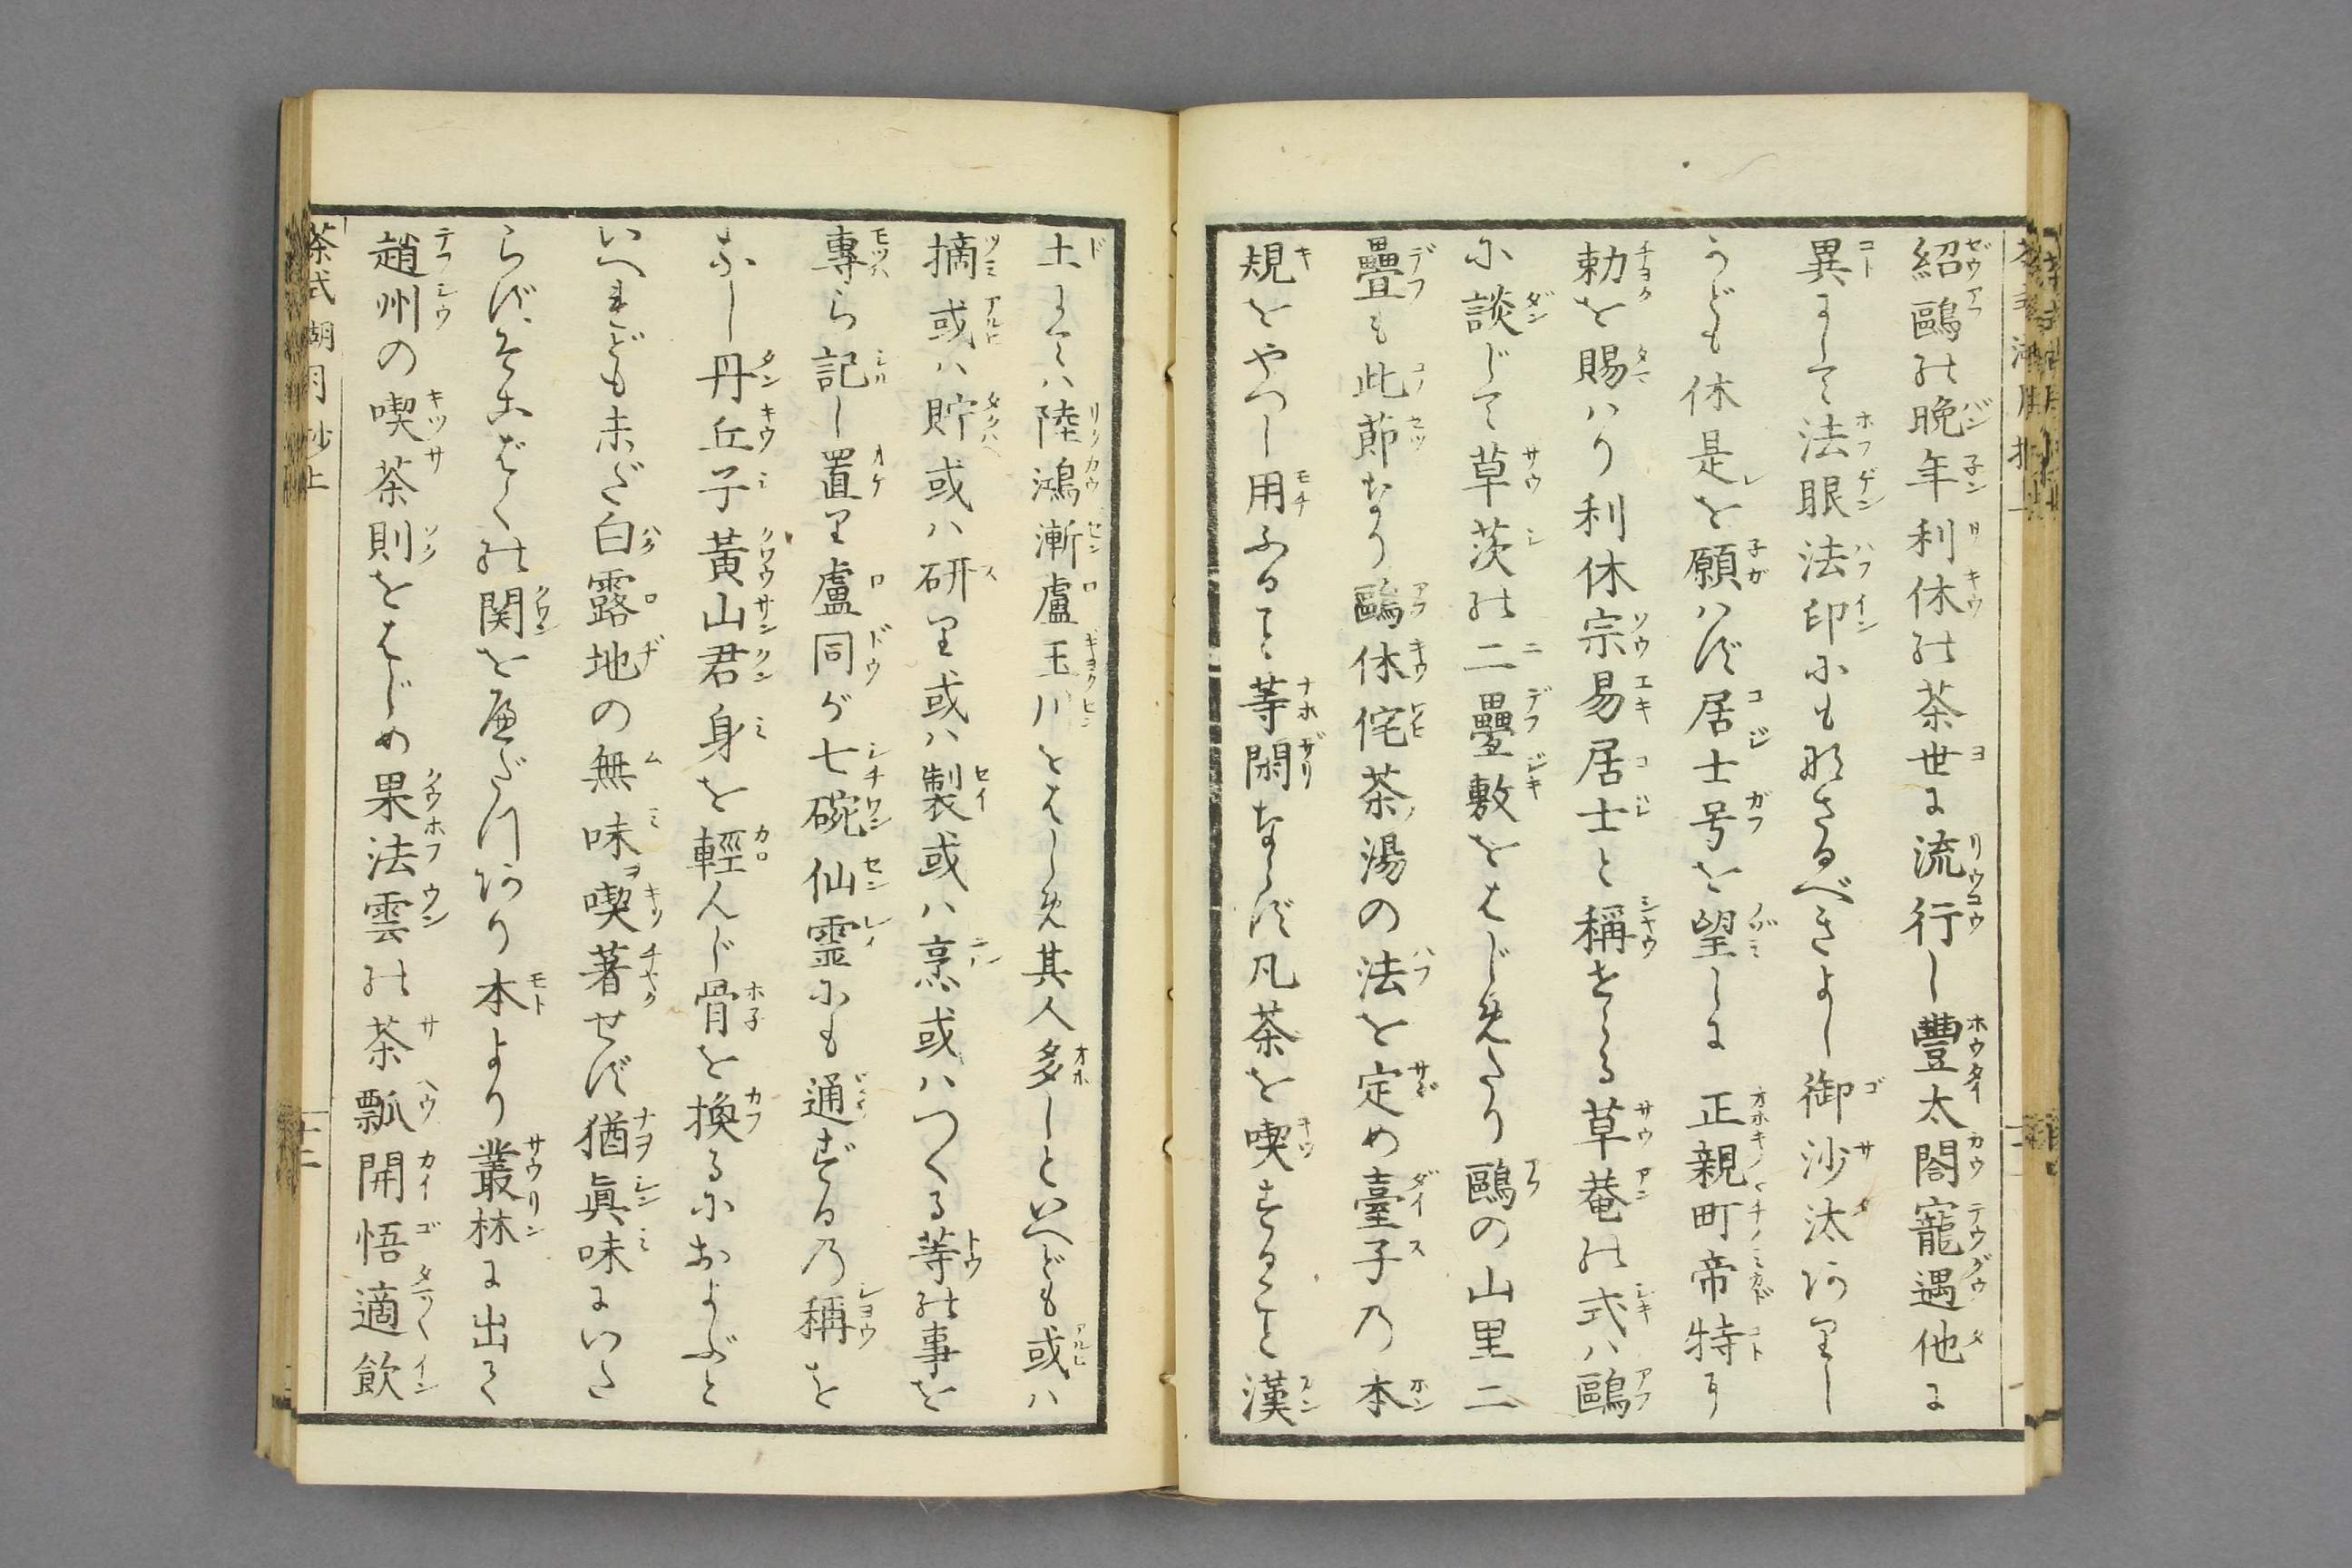 紹鷗の晩年利休の茶世に流行し豐太閤寵遇他に
異にして法眼法印にも那さるべきよし御沙汰ありし
かども休是を願ハず居士号を望しに 正親町帝特に
勅を賜ハり利休宗易居士と稱せらる草菴の式ハ鷗
に談じて草茨の二疊敷をはじめたり鷗の山里二
疊も此節なり鷗休侘茶湯の法を定め臺子乃本
規をやつし用ふること等閑ならず凡茶を喫すること漢
土にてハ陸鴻漸盧玉川をはしめ其人多しといへども或ハ
摘或ハ貯或ハ研り或ハ製或ハ烹或ハつくる等の事を
專ら記し置り盧同が七碗仙霊にも通ずる乃稱を
なし丹丘子黃山君身を輕んじ骨を換るにおよぶと
いへども未だ白露地の無味ヲ喫著せず猶眞味にいた
らず そこばくの関を隔だつあり本より叢林に出て
趙州の喫茶則をはじめ果法雲の茶瓢開悟適飲
茶式湖月抄上
十二